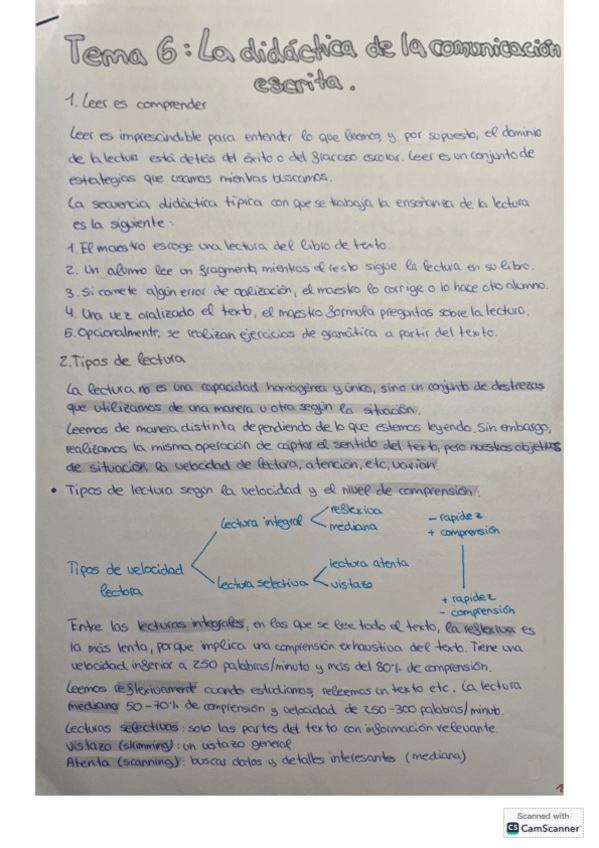 Tema 6: La didáctica de la comunicación
escrita.
1. Leer es comprender
Leer es imprescindible para entender lo que leemos, y por supuesto, el dominio
de la lectura está detrás del éxito o del fracaso escolar. Leer es un conjunto de
estrategias que usamos mientras buscamos.
La secuencia didáctica típica con que se trabaja la enseñanza de la lectura
es la siguiente:
1. El maestro escoge una lectura del libro de texto.
2. Un alumno lee un fragmento, mientras el resto sigue la lectura en su libro.
3. Si comete algún error de oralización, el maestro lo corrige o lo hace otro alumno.
4. Una vez oralizado el texto, el maestro formula preguntas sobre la lectura.
5. Opcionalmente, se realizan ejercicios de gramática a partir del texto.
2. Tipos de lectura
La lectura no es una capacidad homogénea y única, sino un conjunto de destrezas
que utilizamos de una manera u otra según la situación.
Leemos de manera distinta dependiendo de lo que estemos leyendo. Sin embargo,
realizamos la misma operación de captar el sentido del texto, pero nuestros objetivos
de situación, la velocidad de lectura, atención, etc, varían.
• Tipos de lectura según la velocidad y el nivel de comprensión:
Tipos de velocidad
lectora
lectura integral
reflexiva
mediana
lectura selectiva
lectura atenta
vistazo
- rapidez
+ comprensión
+ rapidez
- comprensión
Entre las lecturas integrales, en las que se lee todo el texto, la reflexiva es
la más lenta, porque implica una comprensión exhaustiva del texto. Tiene una
velocidad inferior a 250 palabras/minuto y más del 80% de comprensión.
Leemos reflexivament cuando estudiamos, releemos un texto etc. La lectura
mediana 50-70% de comprensión y velocidad de 250-300 palabras/minuto.
Lecturas selectivas: solo las partes del texto con información relevante.
Vistazo (skimming): un vistazo general
Atenta (scanning): buscar datos y detalles interesantes (mediana)
1
Scanned with
CS CamScanner